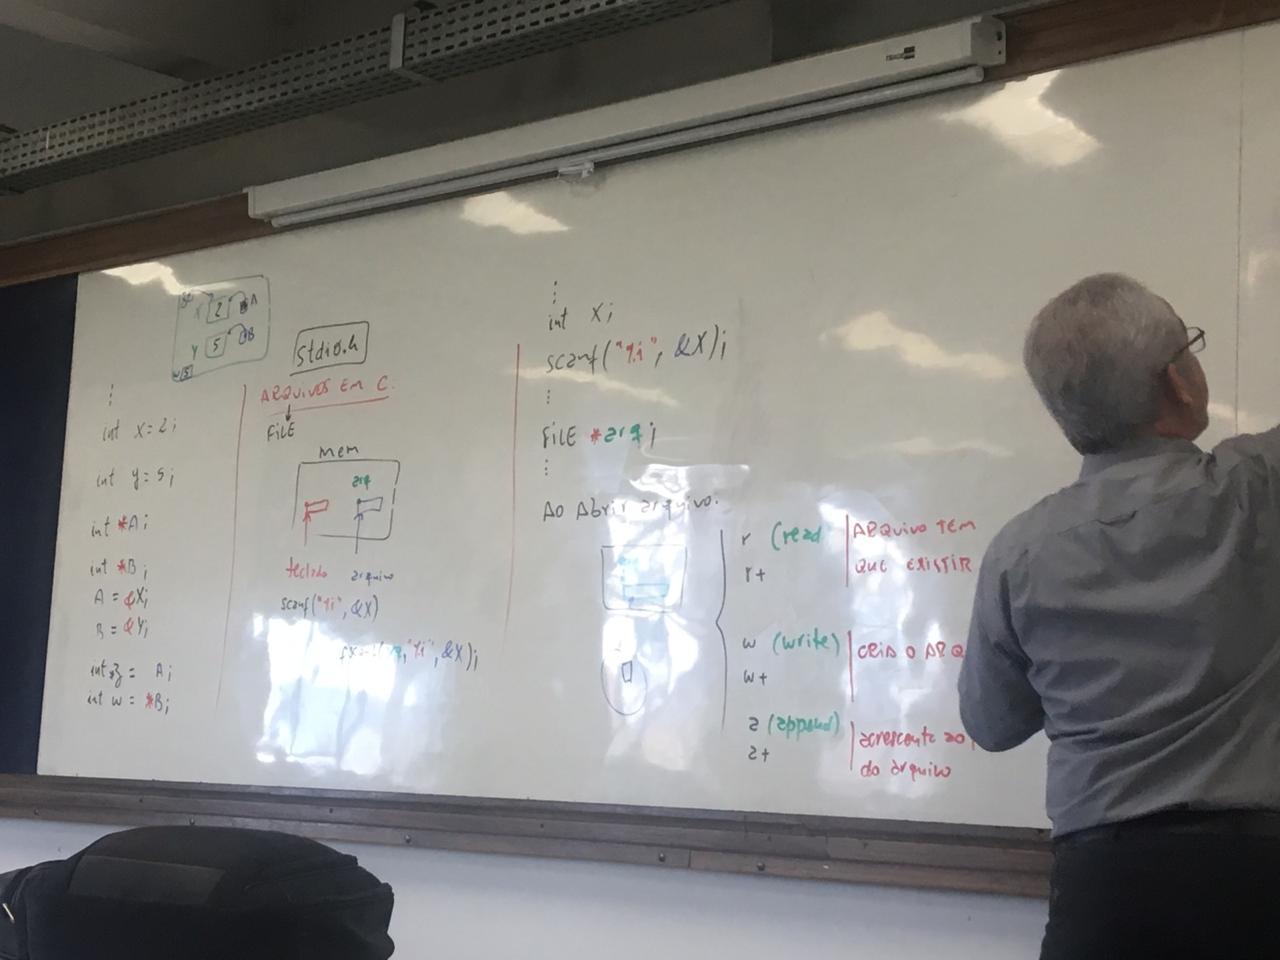 X 2 A
Y 5 B
W 5
int X=2;
int y=5;
int *A;
int *B;
A = &X;
B = &Y;
int z = A;
int w = *B;
stdio.h
ARQUIVOS EM C.
FILE
mem
arq
teclado arquivo
scanf("%i", &X)
"%i", &X);
int X;
scanf("%i", &X);
FILE *arq;
Ao Abrir arquivo:
r (read
r+
ARQUIVO TEM
QUE EXISTIR
w (write)
w+
CRIA O ARQ
a (append)
a+
acrescenta ao
do arquivo